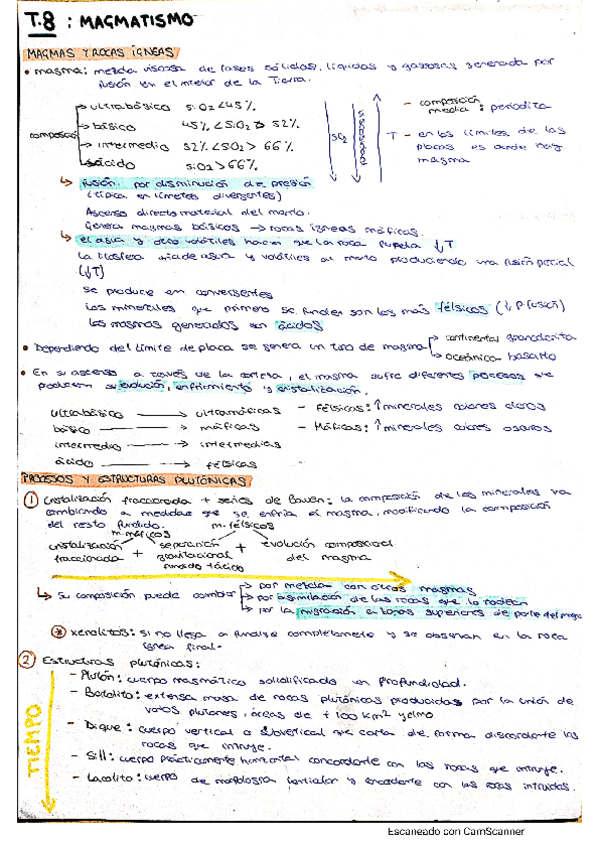 T.8 : MAGMATISMO
MAGMAS Y ROCAS ÍGNEAS
• magma: mezcla viscosa de fases sólidas, líquidas y gaseosas generada por
fusión en el interior de la Tierra.
composición
ultrabásico SiO2 < 45%
básico 45% < SiO2 > 52%
intermedio 52% < SiO2 > 66%
ácido SiO2 > 66%
SiO2
viscosidad
T
- composición media: periodita
- en los límites de las
placas es donde hay
magma
↳ fusión por disminución de presión
(típica en límites divergentes)
Ascenso directo material del manto.
Genera magmas básicos → rocas ígneas máficas.
↳ el agua y otros volátiles hacen que la roca funda ↓T
la litosfera añade agua y volátiles al manto produciendo una fusión parcial
(↓T)
se produce en convergentes
los minerales que primero se funden son los más félsicos (↓ p fusión)
los magmas generados son ácidos
• Dependiendo del límite de placa se genera un tipo de magma
continental granodiorita
oceánica basalto
• En su ascenso a través de la corteza, el magma sufre diferentes procesos que
producen su evolución, enfriamiento y cristalización.
ultrabásico → ultramáficas
básico → máficas
intermedio → intermedias
ácido → félsicas
- Félsicas: ↑ minerales colores claros
- Máficas: ↑ minerales colores oscuros
PROCESOS Y ESTRUCTURAS PLUTÓNICAS
① Cristalización fraccionada + series de Bowen: la composición de los minerales va
cambiando a medida que se enfría el magma, modificando la composición
del resto fundido.
m. máficos m. félsicos
cristalización fraccionada + separación gravitacional + evolución composicional del magma
↳ Su composición puede cambiar
por mezcla con otros magmas
por asimilación de las rocas que lo rodean
por la migración a zonas superiores de parte del magma
xenolitos: si no llega a fundirse completamente y se observan en la roca
ígnea final.
② Estructuras plutónicas:
TIEMPO
- Plutón: cuerpo magmático solidificado en profundidad.
- Batolito: extensa masa de rocas plutónicas producidas por la unión de
varios plutones, áreas de + 100 km2
- Dique: cuerpo vertical o subvertical que corta de forma discordante las
rocas que intruye.
- Sill: cuerpo prácticamente horizontal concordante con las rocas que intruye.
- Lacolito: cuerpo de morfología lenticular y concordante con las rocas intruidas.
Escaneado con CamScanner